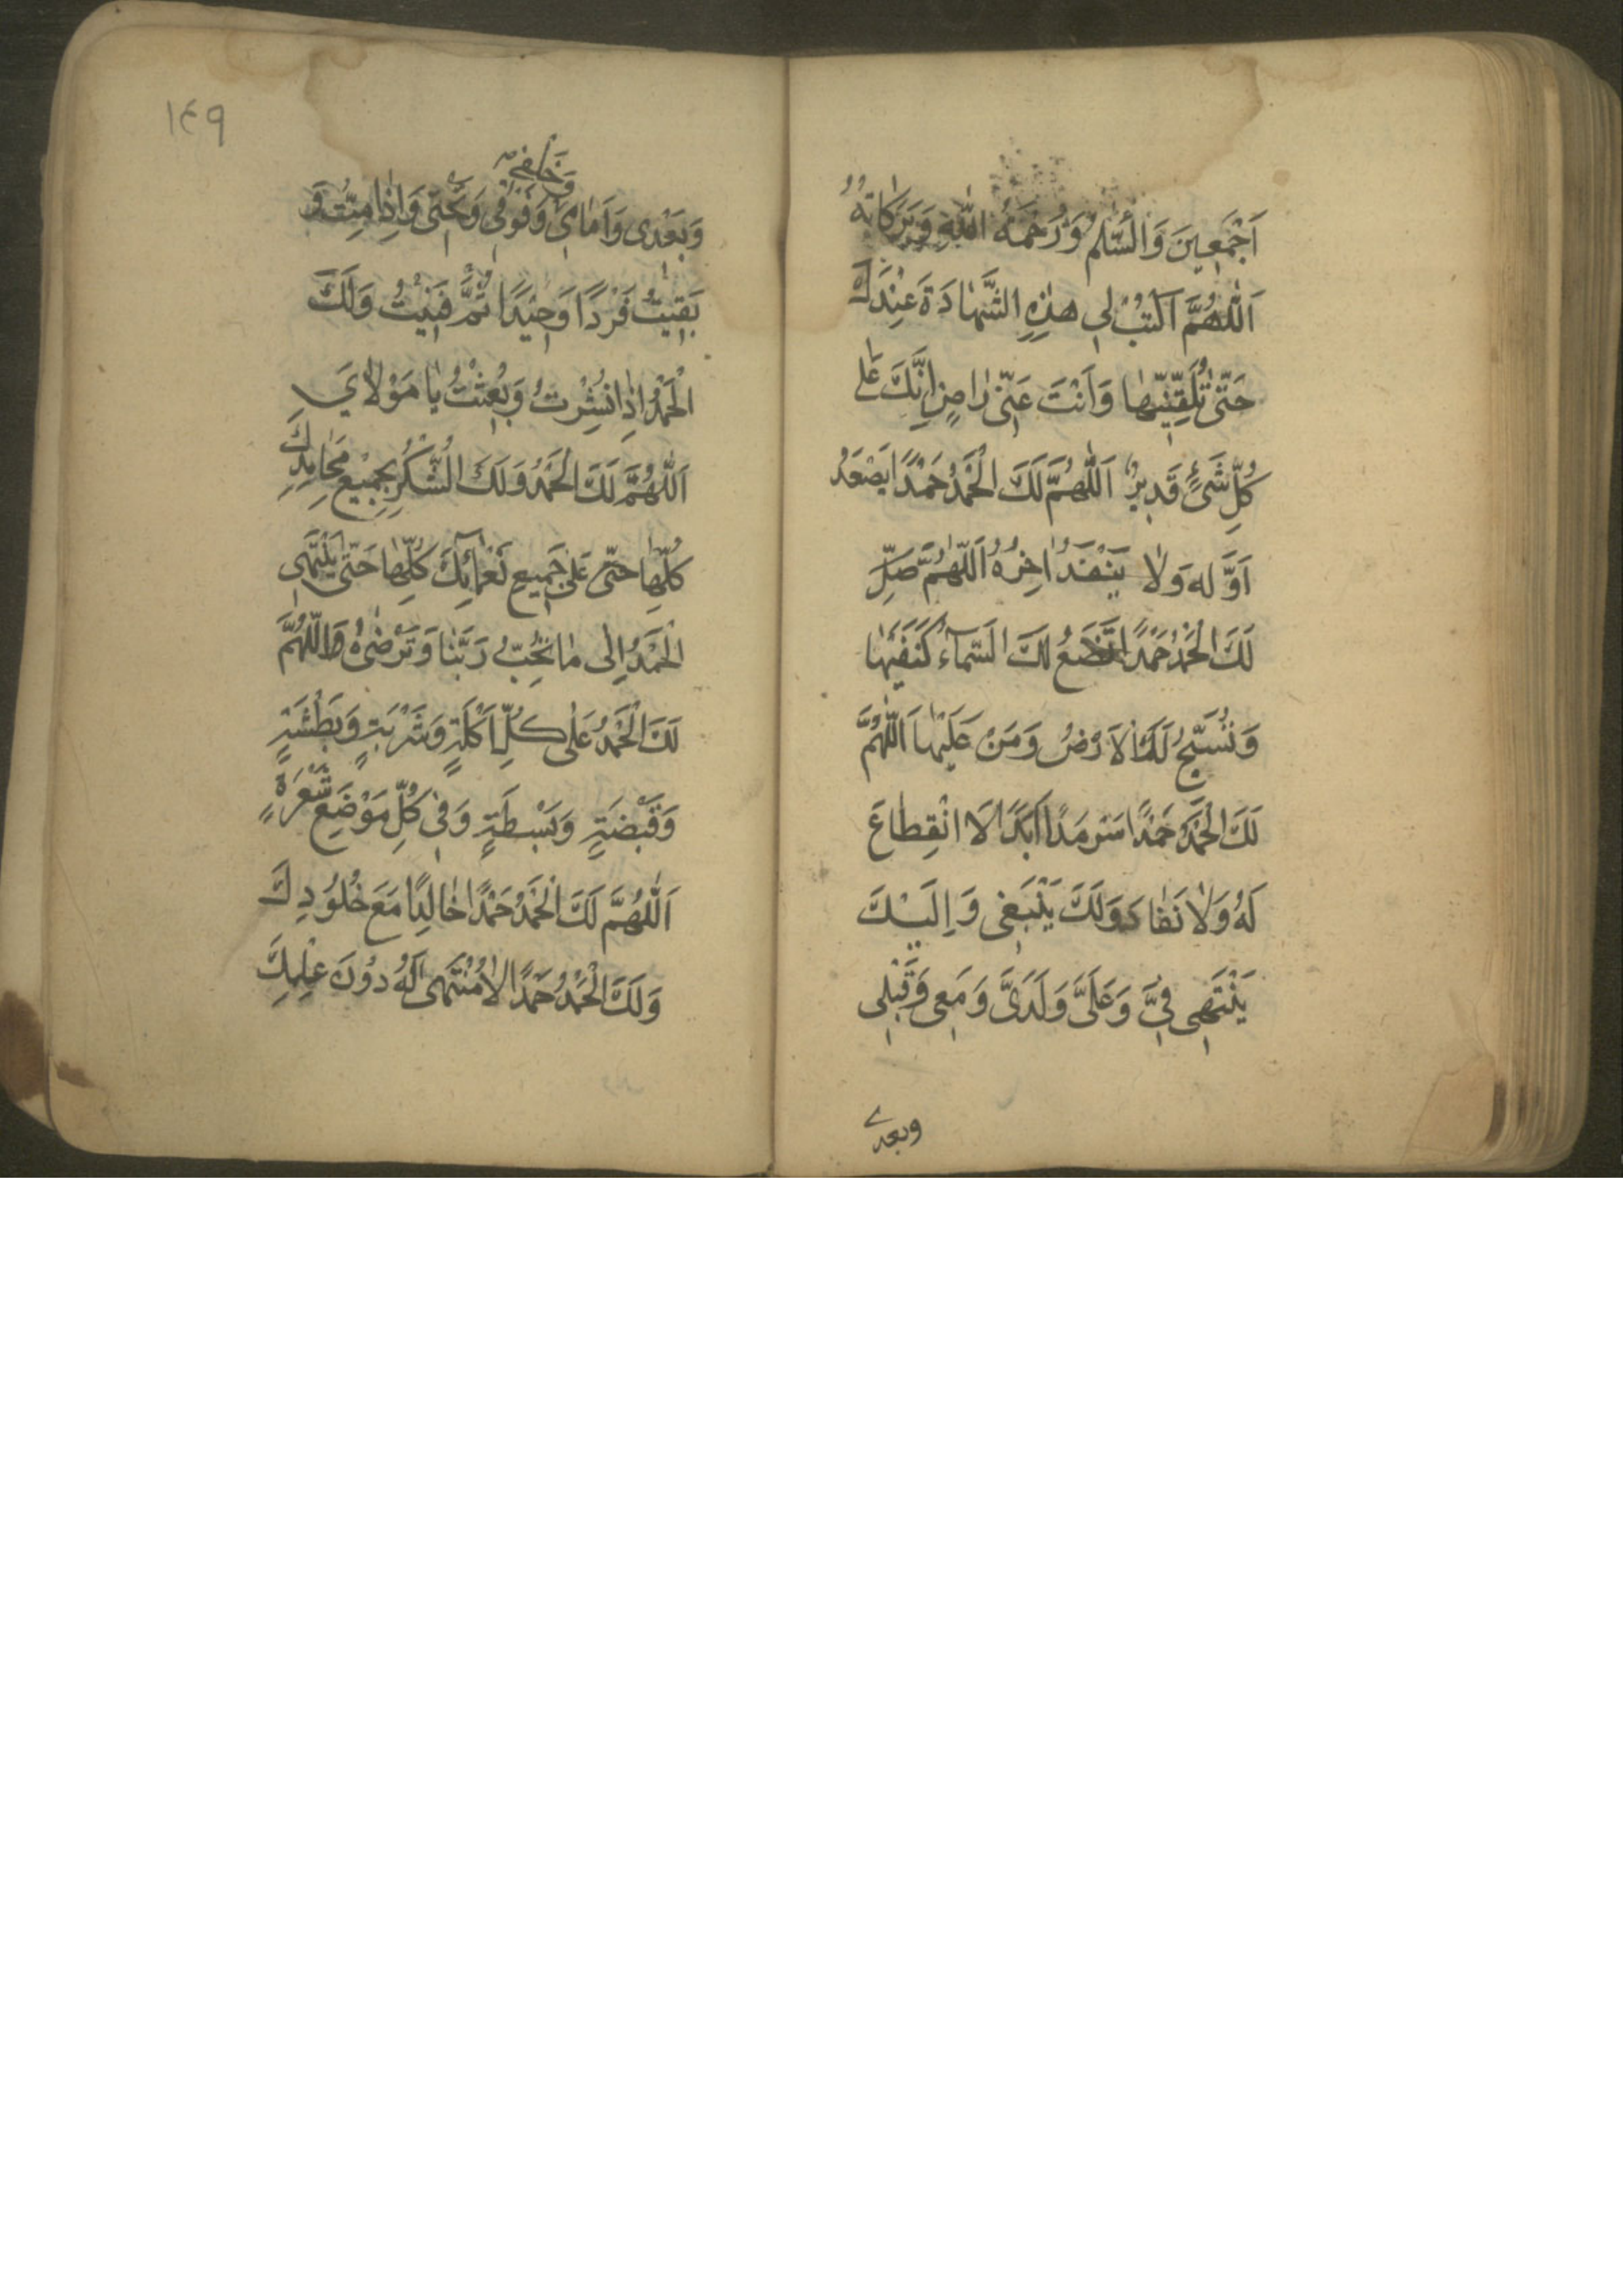 اَجْمَعِينَ وَالسَّلمُ وَرَحْمَةُ اللّٰهِ وَبَرَكاتُهُ
اَللّٰهُمَّ اكْتُبْ لِي هٰذِهِ الشَّهادَةَ عِنْدَكَ
حَتّٰى تُلَقِّنِّيها وَاَنْتَ عَنّي راضٍ اِنَّكَ عَلى
كُلِّ شَيْءٍ قَدِيرٌ اَللّٰهُمَّ لَكَ الْحَمْدُ حَمْدًا يَصْعَدُ
اَوَّلُهُ وَلا يَنْفَدُ اخِرُهُ اَللّٰهُمَّ صَلِّ
لَكَ الْحَمْدُ حَمْدًا تَضَعُ لَكَ السَّمآءُ كَنَفَيْها
وَتُسَبِّحُ لَكَ الاَرْضُ وَمَنْ عَلَيْها اَللّٰهُمَّ
لَكَ الْحَمْدُ حَمْدًا سَرْمَدًا اَبَدًا لَا انْقِطاعَ
لَهُ وَلا نَفادَ وَلَكَ يَنْبَغِي وَاِلَيْكَ
يَنْتَهِي فِيَّ وَعَلَيَّ وَلَدَيَّ وَمَعِي وَقَبْلِي
وبعدي
١٤٩
وَخَلْفِي
وَبَعْدِي وَاَمامِي وَفَوْقِي وَتَحْتِي وَاِذا مِتُّ وَ
بَقِيتُ فَرْدًا وَحِيْدًا ثُمَّ فَنِيْتُ وَلَكَ
الْحَمْدُ اِذا نُشِرْتُ وَبُعِثْتُ يا مَوْلايَ
اَللّٰهُمَّ لَكَ الْحَمْدُ وَلَكَ الشُّكْرُ بِجَمِيْعِ مَحامِدِكَ
كُلِّها حَتّى عَلى جَمِيعِ نَعْمائِكَ كُلِّها حَتّى يَنْتَهِيَ
الْحَمْدُ اِلى ما تُحِبُّ رَبَّنا وَتَرْضٰىهُ اَللّٰهُمَّ
لَكَ الْحَمْدُ عَلٰى كُلِّ اَكْلَةٍ وَشَرْبَةٍ وَبَطْشَةٍ
وَقَبْضَةٍ وَبَسْطَةٍ وَفِي كُلِّ مَوْضِعِ شَعْرَةٍ
اَللّٰهُمَّ لَكَ الْحَمْدُ حَمْدًا خالِدًا مَعَ خُلُودِكَ
وَلَكَ الْحَمْدُ حَمْدًا لا مُنْتَهى لَهُ دُونَ عِلْمِكَ